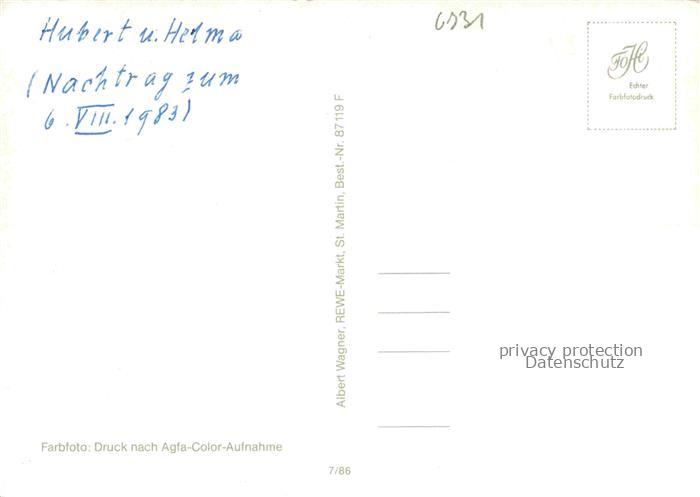 Hubert u. Helma
(Nachtrag zum
6. VIII. 1983)
6531
FoHt
Echter
Farbfotodruck
Albert Wagner, REWE-Markt, St. Martin, Best.-Nr. 87119 F
privacy protection
Datenschutz
Farbfoto: Druck nach Agfa-Color-Aufnahme
7/86